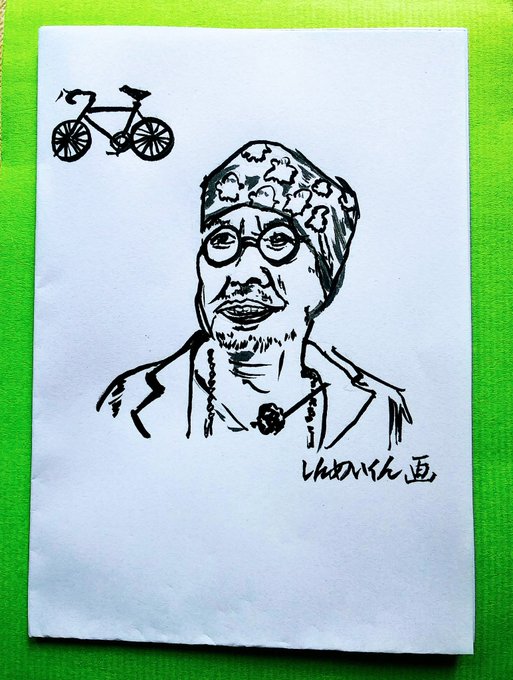 しんめいくん 画